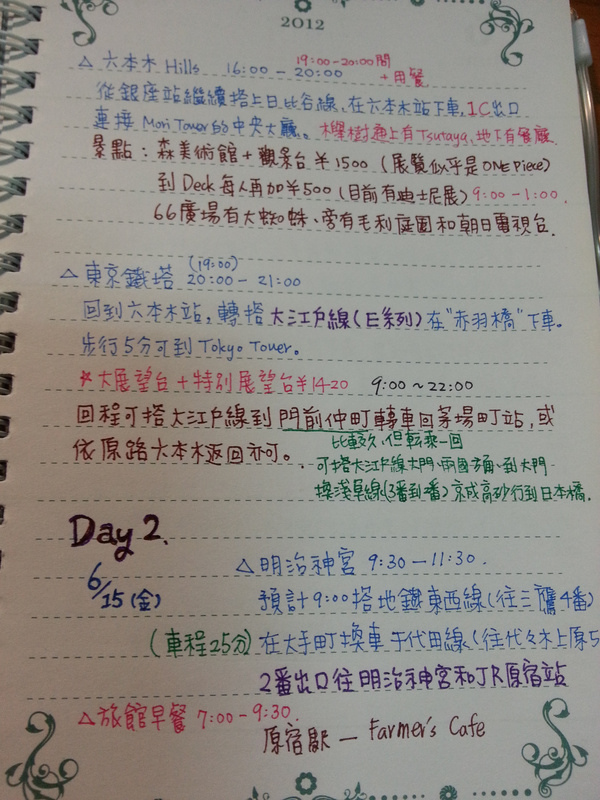 2012
19:00-20:00間
△ 六本木 Hills 16:00 - 20:00 +用餐
從銀座站繼續搭上日比谷線,在六本木站下車,1C出口
連接 Mori Tower的中央大廳。櫸樹通上有Tsutaya,地下有餐廳
景點:森美術館+觀景台¥1500(展覽似乎是ONE Piece)
到Deck每人再加¥500(目前有迪士尼展) 9:00-1:00.
66廣場有大蜘蛛、旁有毛利庭園和朝日電視台.
(19:00)
△ 東京鐵塔 20:00 - 21:00
回到六本木站,轉搭大江戶線(E系列)在"赤羽橋"下車。
步行5分可到Tokyo Tower。
*大展望台+特別展望台¥1420 9:00~22:00
回程可搭大江戶線到門前仲町轉車回茅場町站,或
依原路六本木返回亦可。. 比較久,但轉乘一回
可搭大江戶線大門・兩國方角,到大門
換淺草線(3番到番)京成高砂行到日本橋.
Day 2.
6/15(金)
△明治神宮 9:30-11:30.
預計9:00搭地鐵東西線(往三鷹4番)
(車程25分)在大手町換車千代田線(往代々木上原5
2番出口往明治神宮和JR原宿站
△旅館早餐 7:00-9:30.
原宿駅 — Farmer's Cafe